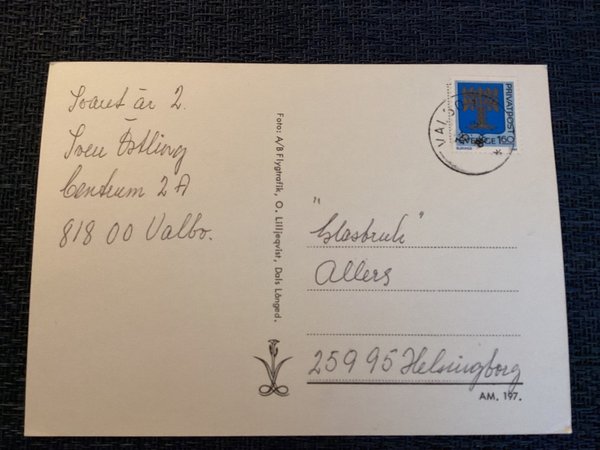 Svaret är 2.
Sven Östling
Centrum 2 A
818 00 Valbo.
Foto: A/B Flygtrafik, O. Lilljeqvist, Dals Långed.
PRIVATPOST
SVERIGE 160
"Glasbruk"
Allers
25995 Helsingborg
AM. 197.